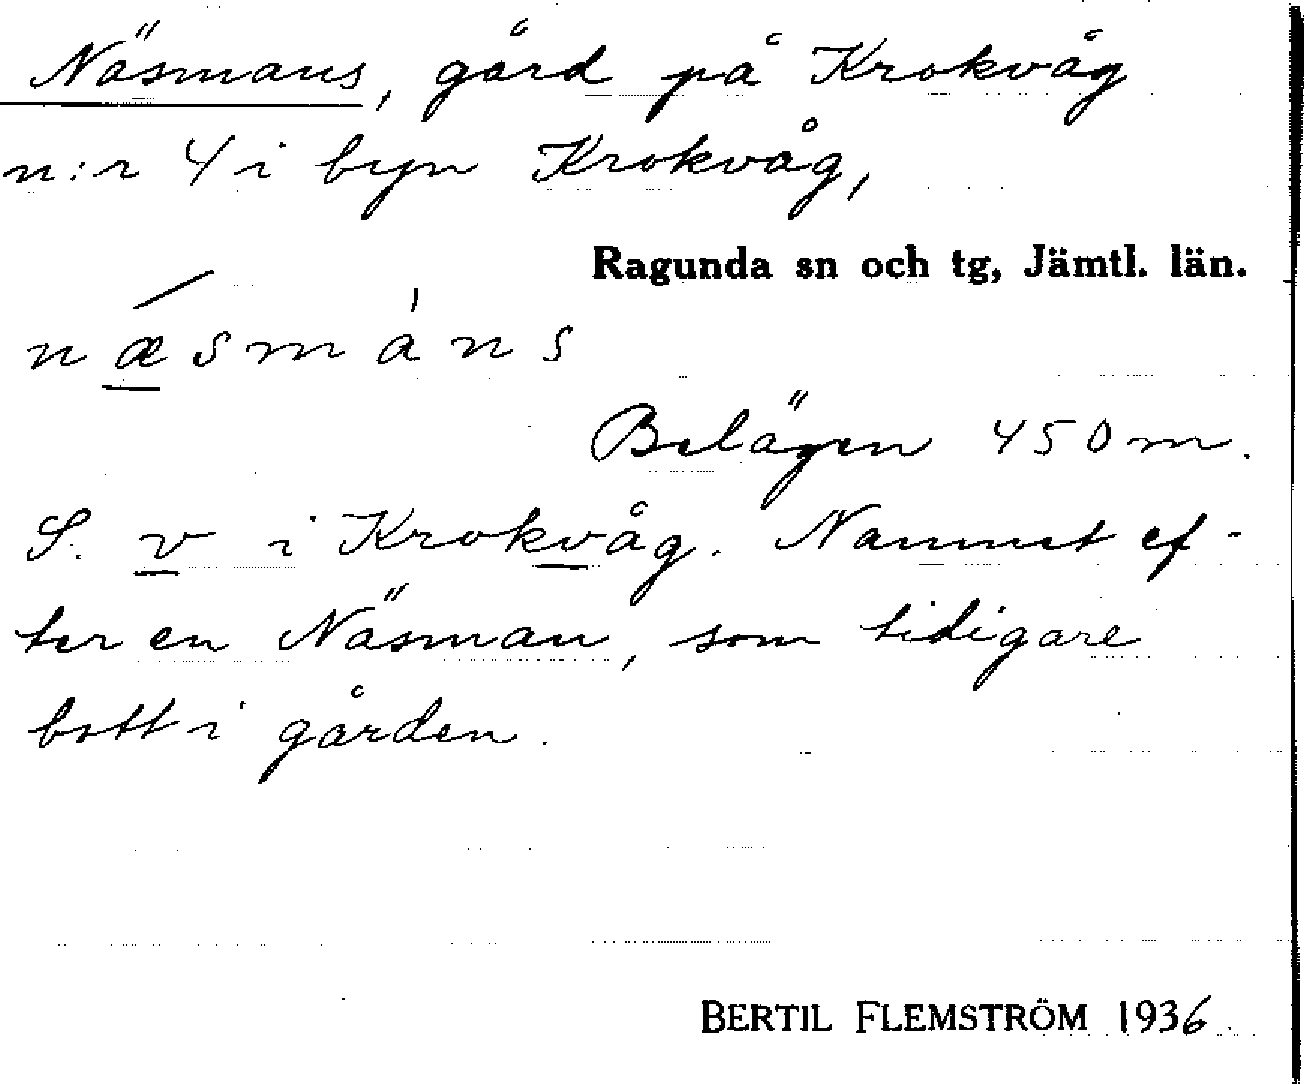 Näsmans, gård på Krokvåg
n:r 4 i byn Krokvåg,
Ragunda sn och tg, Jämtl. län.
næsmàns
Belägen 450 m.
S. v i Krokvåg. Namnet ef-
ter en Näsman, som tidigare
bott i gården.
BERTIL FLEMSTRÖM 1936